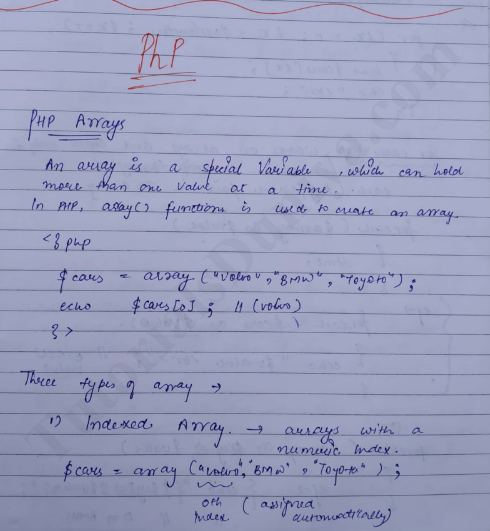 PhP
PHP Arrays
An array is a special Variable, which can hold
more than one value at a time.
In PHP, array() function is used to create an array.
<{php
$cars = array ("Volvo", "BMW", "Toyota");
echo $cars[0]; // (volvo)
}>
Three types of array →
1) Indexed Array. → arrays with a
numeric Index.
$cars = array ("Volvo", "BMW", "Toyota");
0th
Index
(assigned
automatically)